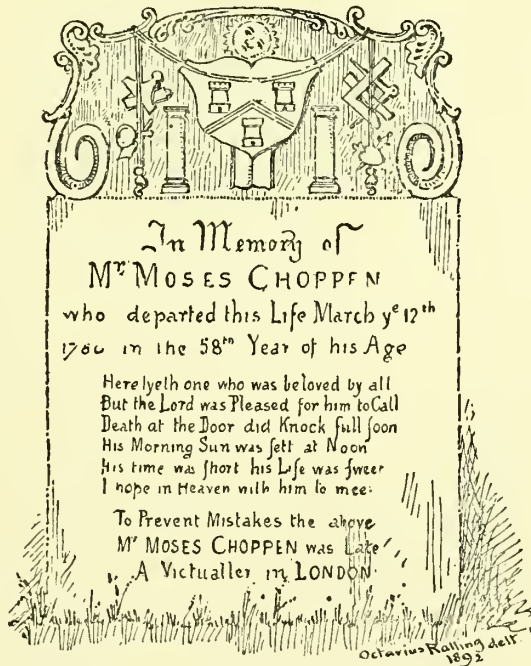 In Memory of
Mr. MOSES CHOPPEN
who departed this Life March ye 12th
in the 58th Year of his Age
Here lyeth one who was beloved by all
But the Lord was Pleased for him to Call
Death at the Door did Knock full ſoon
His Morning Sun was ſett at Noon
His time was ſhort his Life was ſweet
I hope in Heaven with him to mee:
To Prevent Mistakes the above
Mr MOSES CHOPPEN was Late
A Victualler in LONDON
Octavius Ralling delt.
1892